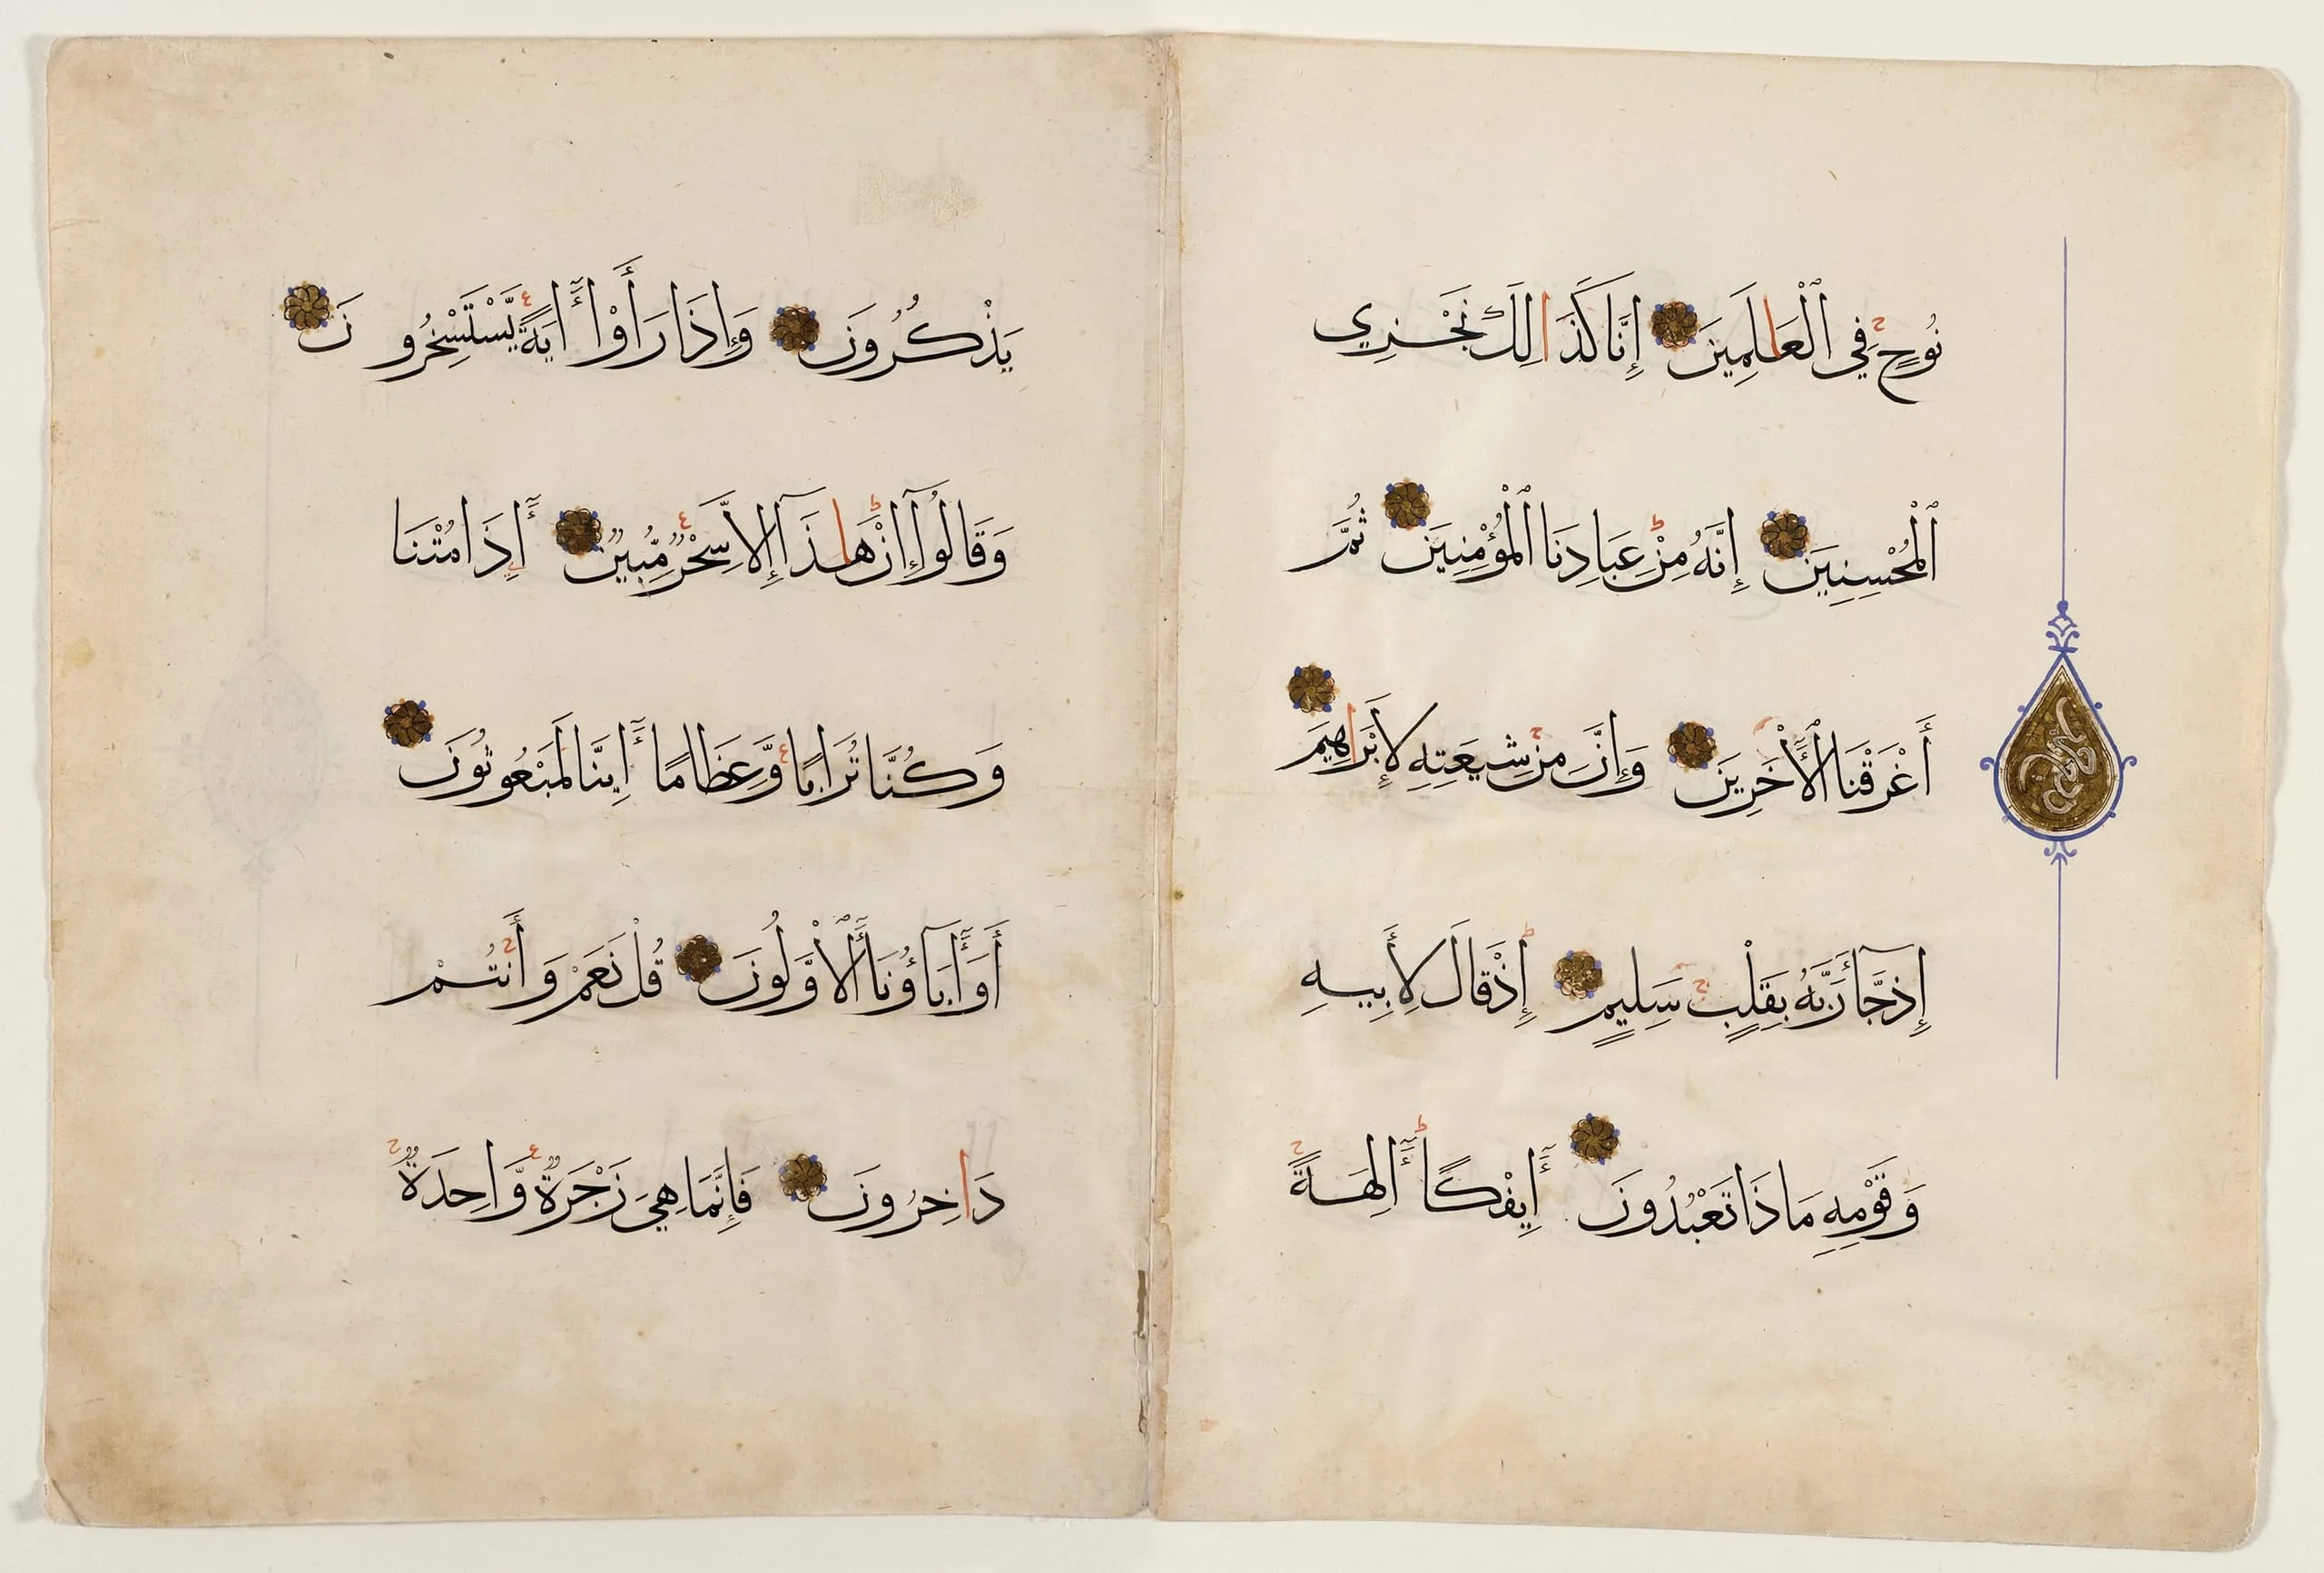 نُوحٍ فِي ٱلْعَالَمِينَ إِنَّا كَذَالِكَ نَجْزِي
ٱلْمُحْسِنِينَ إِنَّهُ مِنْ عِبَادِنَا ٱلْمُؤْمِنِينَ ثُمَّ
أَغْرَقْنَا ٱلْأَخَرِينَ وَإِنَّ مِنْ شِيعَتِهِ لَإِبْرَاهِيمَ
إِذجَّآءَ رَبَّهُ بِقَلْبٍ سَلِيمٍ إِذْ قَالَ لِأَبِيهِ
وَقَوْمِهِ مَا ذَا تَعْبُدُونَ أَئِفْكًا ءَالِهَةً
يَذْكُرُونَ وَإِذَا رَأَوْا ءَايَةً يَّسْتَسْخِرُونَ
وَقَالُوٓا إِنْ هَاذَآ إِلَّا سِحْرٌ مُّبِينٌ أَءِذَا مُتْنَا
وَكُنَّا تُرَابًا وَّعِظَامًا أَءِنَّا لَمَبْعُوثُونَ
أَوَءَابَآؤُنَا ٱلْأَوَّلُونَ قُلْ نَعَمْ وَأَنتُمْ
دَاخِرُونَ فَإِنَّمَا هِيَ زَجْرَةٌ وَّاحِدَةٌ